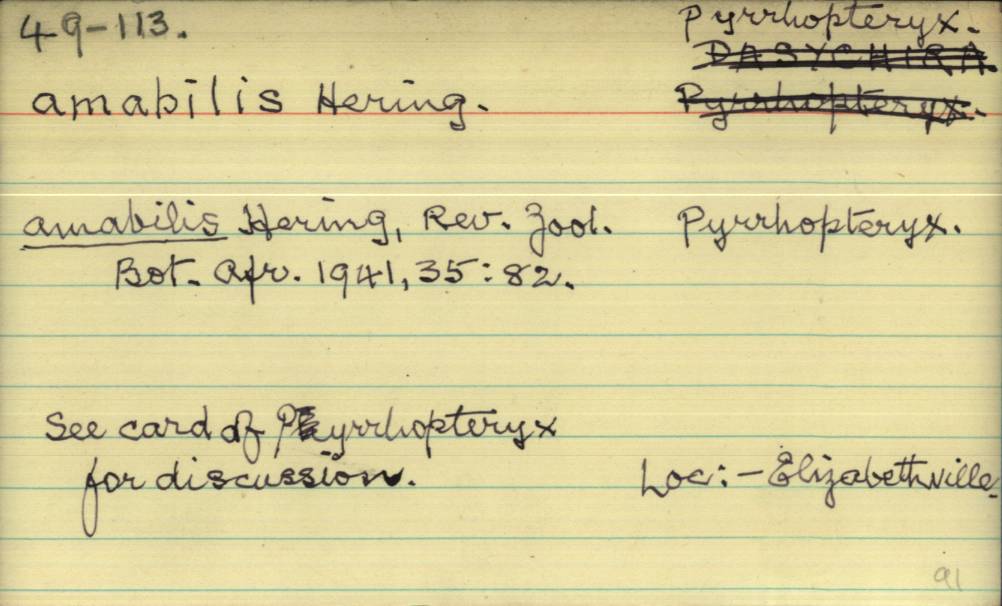 49-113.
Pyrrhopteryx.
DASYCHIRA.
amabilis Hering.
Pyrrhopteryx.
amabilis Hering, Rev. Zool. Pyrrhopteryx.
Bot. Afr. 1941, 35:82.
See card of Pyrrhopteryx
for discussion.
Loc:- Elizabethville.
91